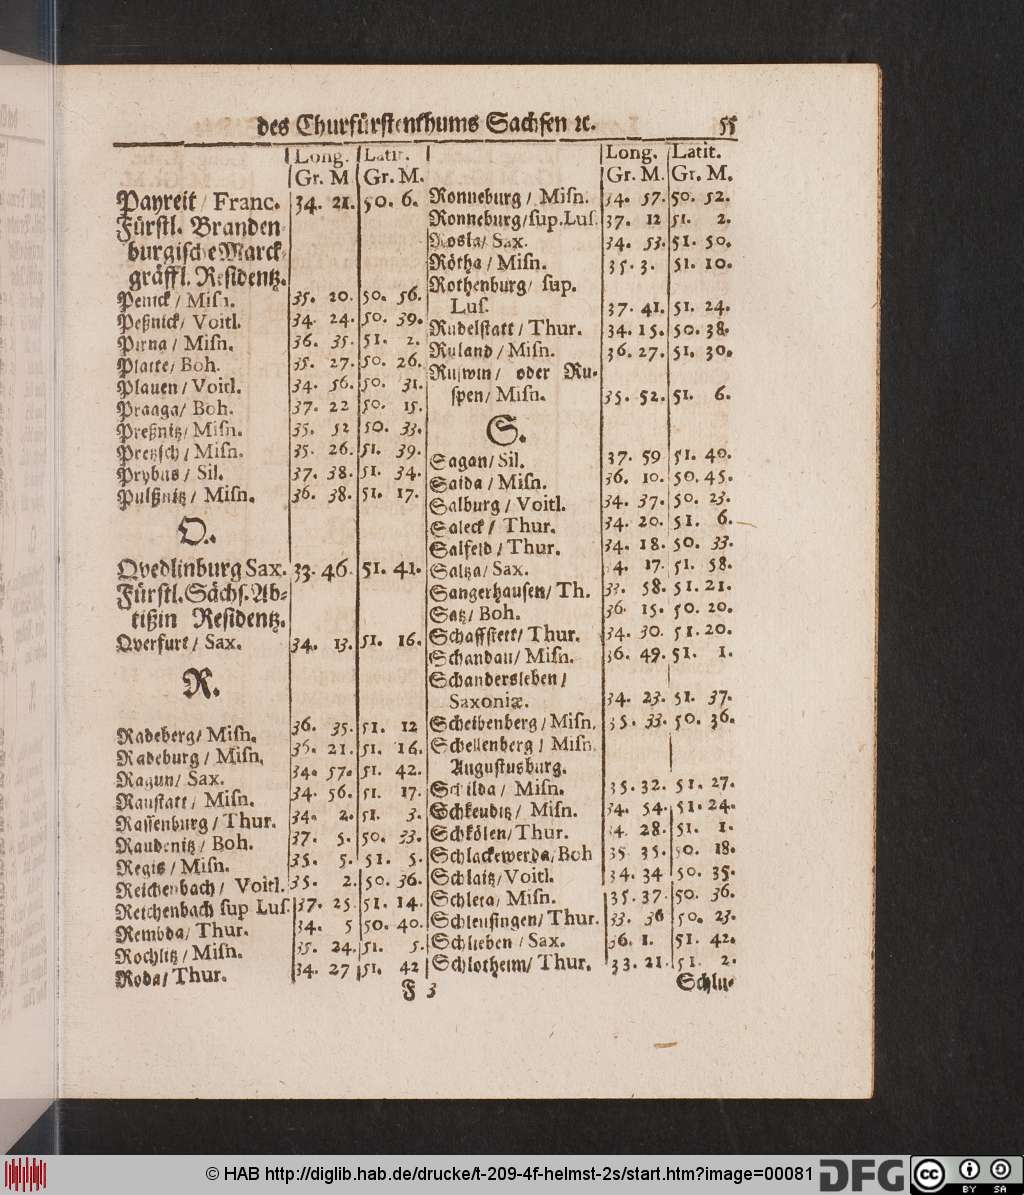 des Churfürstenthums Sachsen ꝛc. 55
Long. Latit.
Gr. M. Gr. M.
Payreit / Franc. 34. 21. 50. 6.
Fürstl. Branden
burgische Marck-
gräffl. Residentz.
Penick / Misn. 35. 20. 50. 56.
Peßnick / Voitl. 34. 24. 50. 39.
Pirna / Misn. 36. 35. 51. 2.
Platte / Boh. 35. 27. 50. 26.
Plauen / Voitl. 34. 56. 50. 31.
Praaga / Boh. 37. 22 50. 15.
Preßnitz / Misn. 35. 52 50. 33.
Pretzsch / Misn. 35. 26. 51. 39.
Prybus / Sil. 37. 38. 51. 34.
Pulßnitz / Misn. 36. 38. 51. 17.
Q.
Qvedlinburg Sax. 33. 46. 51. 41.
Fürstl. Sächs. Ab-
tißin Residentz.
Qverfurt / Sax. 34. 13. 51. 16.
R.
Radeberg / Misn. 36. 35. 51. 12
Radeburg / Misn. 36. 21. 51. 16.
Ragun / Sax. 34. 57. 51. 42.
Ranstatt / Misn. 34. 56. 51. 17.
Rassenburg / Thur. 34. 2. 51. 3.
Raudenitz / Boh. 37. 5. 50. 33.
Regis / Misn. 35. 5. 51. 5.
Reichenbach / Voitl. 35. 2. 50. 36.
Reichenbach sup Lus. 37. 25 51. 14.
Rembda / Thur. 34. 5 50. 40.
Rochlitz / Misn. 35. 24. 51. 5.
Roda / Thur. 34. 27 51. 42
Long. Latit.
Gr. M. Gr. M.
Ronneburg / Misn. 34. 57. 50. 52.
Ronneburg / sup. Lus. 37. 12 51. 2.
Rosla / Sax. 34. 53. 51. 50.
Rötha / Misn. 35. 3. 51. 10.
Rothenburg / sup.
Lus. 37. 41. 51. 24.
Rudelstatt / Thur. 34. 15. 50. 38.
Ruland / Misn. 36. 27. 51. 30.
Ruswin / oder Ru-
spen / Misn. 35. 52. 51. 6.
S.
Sagan / Sil. 37. 59 51. 40.
Saida / Misn. 36. 10. 50. 45.
Salburg / Voitl. 34. 37. 50. 23.
Saleck / Thur. 34. 20. 51. 6.
Salfeld / Thur. 34. 18. 50. 33.
Saltza / Sax. 4. 17. 51. 58.
Sangerhausen / Th. 33. 58. 51. 21.
Satz / Boh. 36. 15. 50. 20.
Schaffstett / Thur. 34. 30. 51. 20.
Schandau / Misn. 36. 49. 51. 1.
Schandersleben /
Saxoniæ. 34. 23. 51. 37.
Scheibenberg / Misn. 35. 33. 50. 36.
Schellenberg / Misn.
Augustusburg.
Schilda / Misn. 35. 32. 51. 27.
Schkeuditz / Misn. 34. 54. 51. 24.
Schkölen / Thur. 4. 28. 51. 1.
Schlackewerda / Boh 35 35. 50. 18.
Schlaitz / Voitl. 34. 34 50. 35.
Schleta / Misn. 35. 37. 50. 36.
Schleusingen / Thur. 33. 36 50. 23.
Schlieben / Sax. 36. 1. 51. 42.
Schlotheim / Thur. 33. 21. 51. 2.
F 3 Schlu-
© HAB http://diglib.hab.de/drucke/t-209-4f-helmst-2s/start.htm?image=00081 DFG cc BY SA